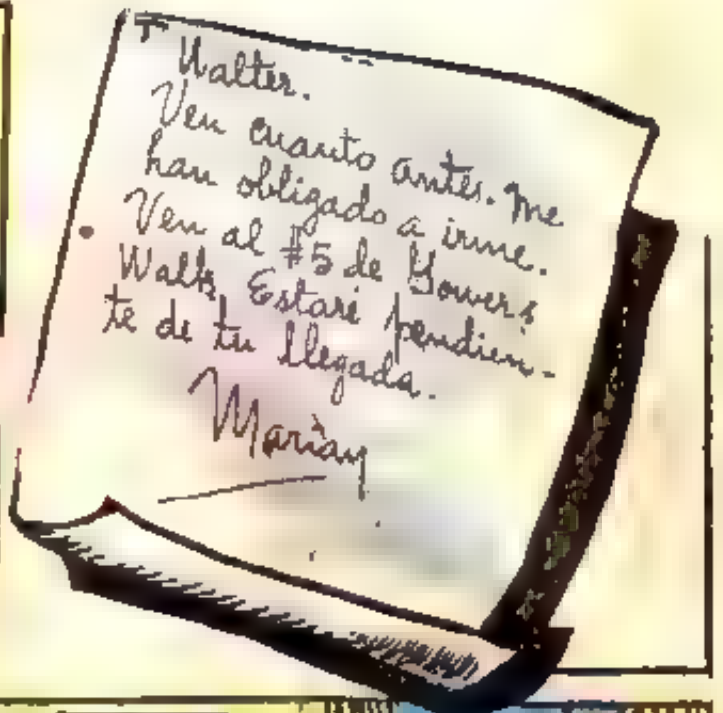 Walter.
Ven cuanto antes. Me
han obligado a irme.
Ven al #5 de Gowers
Walk, Estaré pendien-
te de tu llegada.
Marian